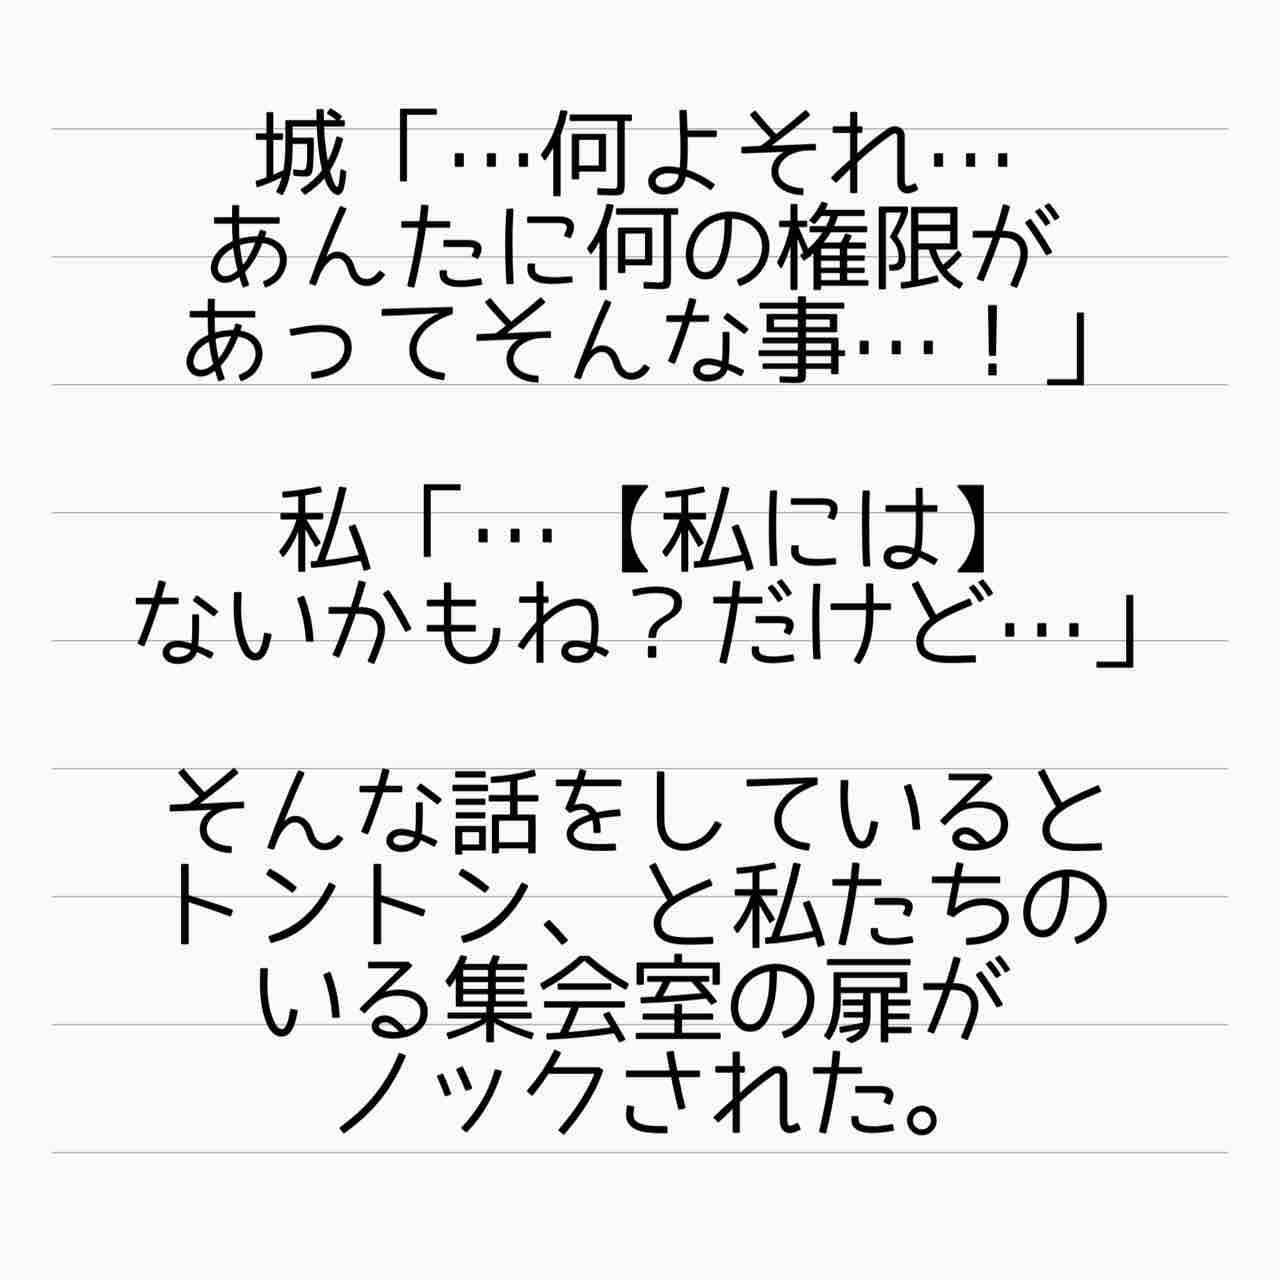 城「…何よそれ…
あんたに何の権限が
あってそんな事…！」
私「…【私には】
ないかもね？だけど…」
そんな話をしていると
トントン、と私たちの
いる集会室の扉が
ノックされた。